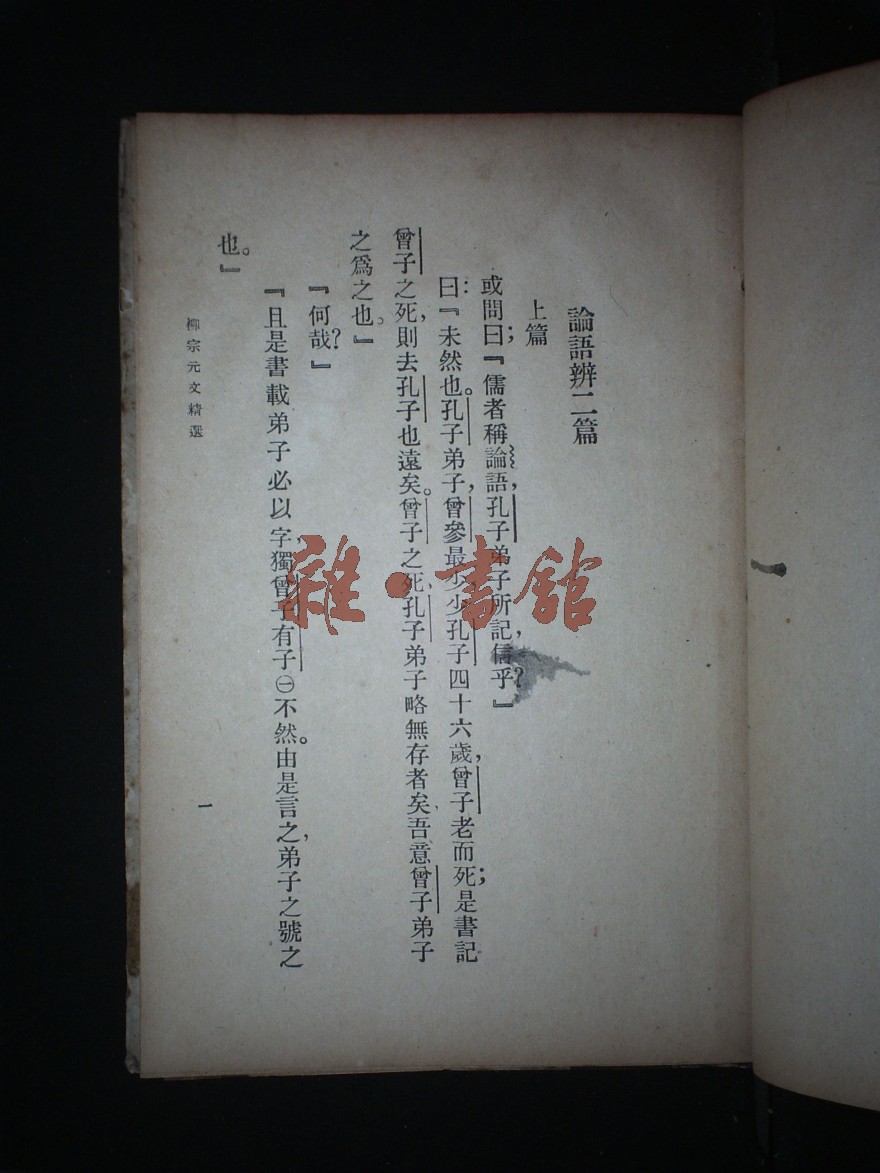 論語辨二篇
上篇
或問曰;『儒者稱論語,孔子弟子所記,信乎?』
曰:『未然也。孔子弟子,曾參最少,少孔子四十六歲,曾子老而死;是書記
曾子之死,則去孔子也遠矣。曾子之死,孔子弟子略無存者矣,吾意曾子弟子
之爲之也。』
『何哉?』
『且是書載弟子必以字,獨曾子有子㊀不然。由是言之,弟子之號之
也。』
柳宗元文精選
一
雜·書館